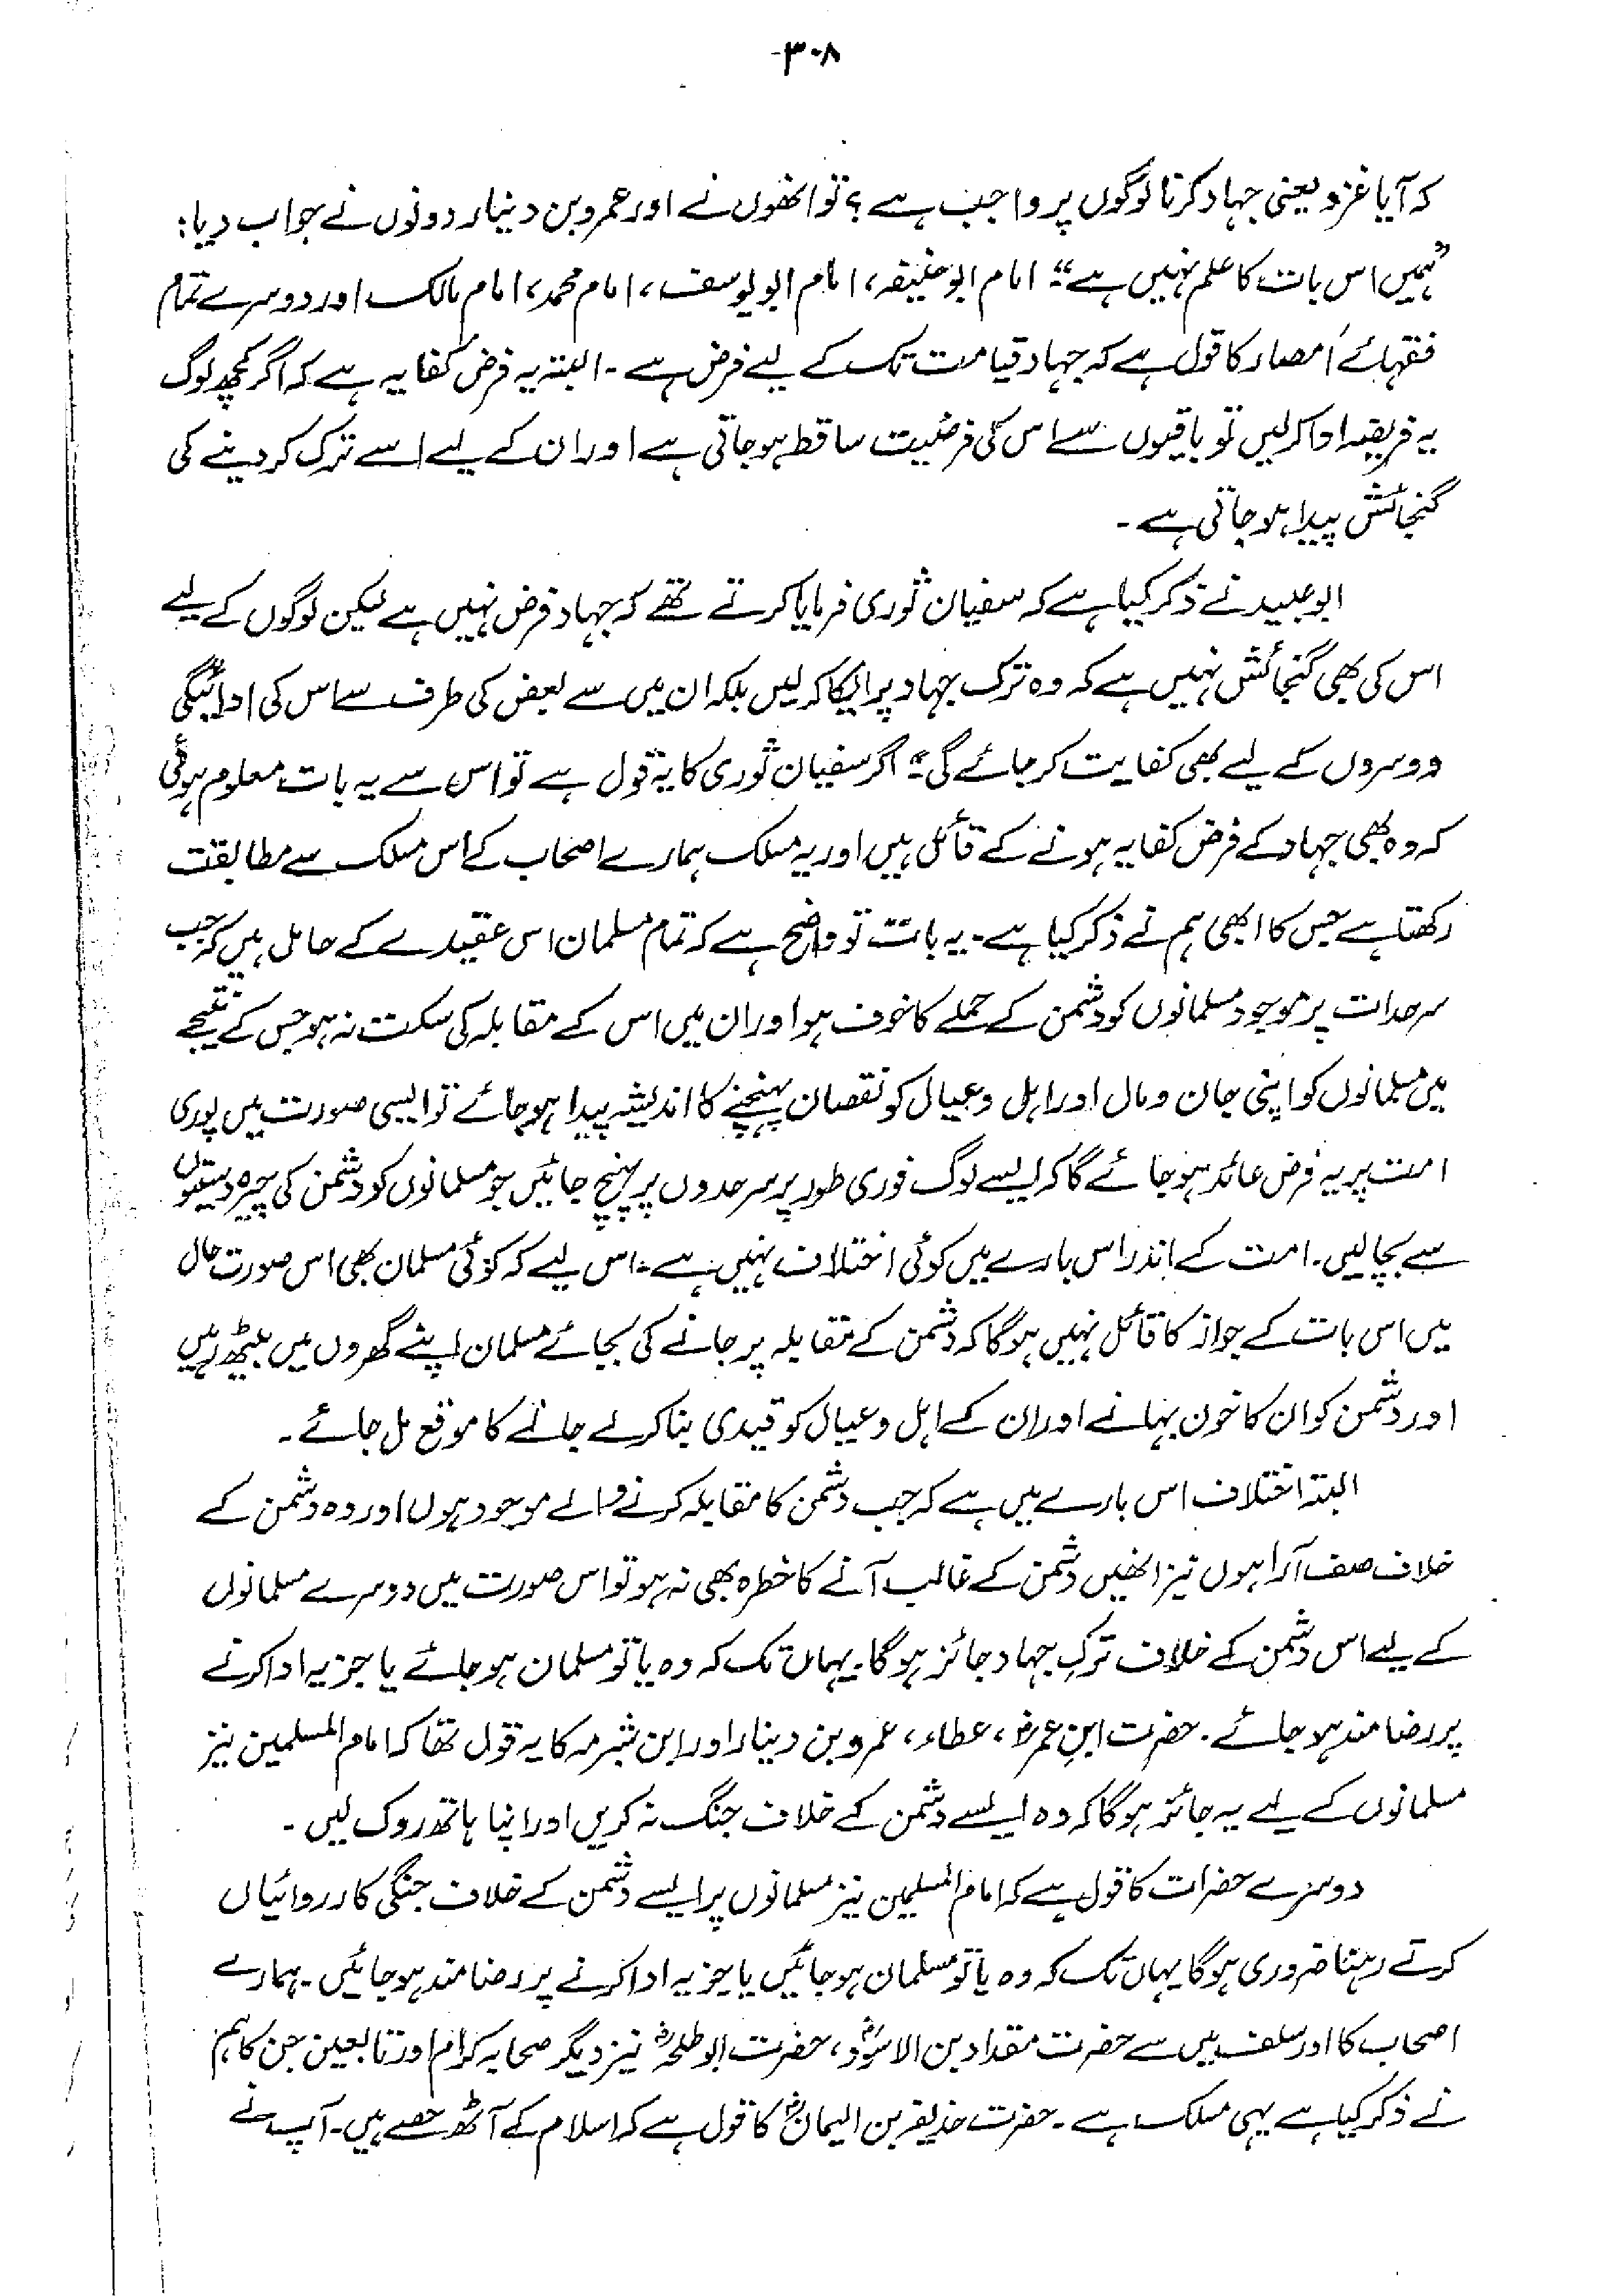 -۳۰۸
کہ آیا غزو یعنی جہاد کرنا لوگوں پر واجب ہے؟ تو انھوں نے اور عمرو بن دینار دونوں نے جواب دیا:
"ہمیں اس بات کا علم نہیں ہے"۔ امام ابوحنیفہ، امام ابویوسف، امام محمد، امام مالک اور دوسرے تمام
فقہائے اَمصار کا قول ہے کہ جہاد قیامت تک کے لیے فرض ہے۔ البتہ یہ فرض کفایہ ہے کہ اگر کچھ لوگ
یہ فریضہ ادا کرلیں تو باقیوں سے اس کی فرضیت ساقط ہوجاتی ہے اور ان کے لیے اسے ترک کردینے کی
گنجائش پیدا ہوجاتی ہے۔
ابوعبید نے ذکر کیا ہے کہ سفیان ثوری فرمایا کرتے تھے کہ جہاد فرض نہیں ہے لیکن لوگوں کے لیے
اس کی بھی گنجائش نہیں ہے کہ وہ ترک جہاد پر ایکا کرلیں بلکہ ان میں سے بعض کی طرف سے اس کی ادائیگی
دوسروں کے لیے بھی کفایت کر جائے گی"۔ اگر سفیان ثوری کا یہ قول ہے تو اس سے یہ بات معلوم ہوئی
کہ وہ بھی جہاد کے فرض کفایہ ہونے کے قائل ہیں اور یہ مسلک ہمارے اصحاب کے اس مسلک سے مطابقت
رکھتا ہے جس کا ابھی ہم نے ذکر کیا ہے۔ یہ بات تو واضح ہے کہ تمام مسلمان اس عقیدے کے حامل ہیں کہ جب
سرحدات پر موجود مسلمانوں کو دشمن کے حملے کا خوف ہو اور ان میں اس کے مقابلہ کی سکت نہ ہو جس کے نتیجے
میں مسلمانوں کو اپنی جان و مال اور اہل و عیال کو نقصان پہنچنے کا اندیشہ پیدا ہوجائے تو ایسی صورت میں پوری
امت پر یہ فرض عائد ہوجائے گا کہ ایسے لوگ فوری طور پر سرحدوں پر پہنچ جائیں جو مسلمانوں کو دشمن کی چیرہ دستیوں
سے بچالیں۔ امت کے اندر اس بارے میں کوئی اختلاف نہیں ہے۔ اس لیے کہ کوئی مسلمان بھی اس صورت حال
میں اس بات کے جواز کا قائل نہیں ہوگا کہ دشمن کے مقابلہ پر جانے کی بجائے مسلمان اپنے گھروں میں بیٹھ رہیں
اور دشمن کو ان کا خون بہانے اور ان کے اہل و عیال کو قیدی بنا کر لے جانے کا موقع مل جائے۔
البتہ اختلاف اس بارے میں ہے کہ جب دشمن کا مقابلہ کرنے والے موجود ہوں اور وہ دشمن کے
خلاف صف آرا ہوں نیز انھیں دشمن کے غالب آنے کا خطرہ بھی نہ ہو تو اس صورت میں دوسرے مسلمانوں
کے لیے اس دشمن کے خلاف ترکِ جہاد جائز ہوگا۔ یہاں تک کہ وہ یا تو مسلمان ہوجائے یا جزیہ ادا کرنے
پر رضامند ہوجائے۔ حضرت ابنِ عمرؓ، عطاء، عمرو بن دینار اور ابن شبرمہ کا یہ قول تھا کہ امام المسلمین نیز
مسلمانوں کے لیے یہ جائز ہوگا کہ وہ ایسے دشمن کے خلاف جنگ نہ کریں اور اپنا ہاتھ روک لیں۔
دوسرے حضرات کا قول ہے کہ امام المسلمین نیز مسلمانوں پر ایسے دشمن کے خلاف جنگی کارروائیاں
کرتے رہنا ضروری ہوگا یہاں تک کہ وہ یا تو مسلمان ہوجائیں یا جزیہ ادا کرنے پر رضامند ہوجائیں۔ ہمارے
اصحاب کا اور سلف میں سے حضرت مقداد بن الاسودؓ، حضرت ابوطلحہؓ نیز دیگر صحابہ کرام اور تابعین جن کا ہم
نے ذکر کیا ہے یہی مسلک ہے۔ حضرت حذیفہ بن الیمانؓ کا قول ہے کہ اسلام کے آٹھ حصے ہیں۔ آپ نے